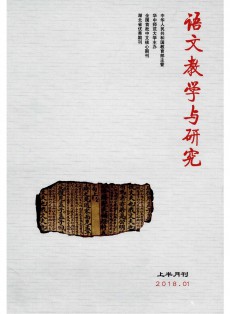 中华人民共和国教育部主管
华中师范大学主办
全国首批中文核心期刊
湖北省优秀期刊
语文教学与研究
上半月刊
2018.01